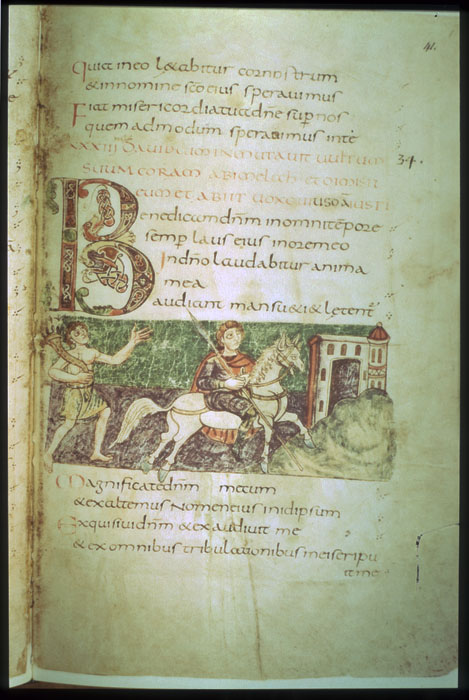 41.
Quia in eo laetabitur cor nostrum
& in nomine sc̄o eius speravimus
Fiat misericordia tua dn̄e sup nos
quem admodum speravimus in te
XXXIII DAVID CUM INMUTAVIT VULTUM
34.
SUUM CORAM ABIMELECH ET DIMISIT
EUM ET ABIIT
Benedicam dn̄m in omni tempore
semp laus eius in ore meo
In dn̄o laudabitur anima
mea
audiant mansu&i & letent
Magnificate dn̄m mecum
& exaltemus nomen eius in idipsum
Exquisivi dn̄m & exaudivit me
& ex omnibus tribulationibus meis eripu
it me